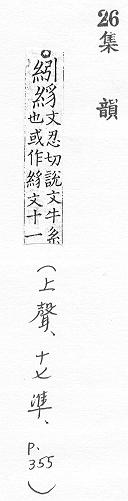 26 集韻
紖絼
丈忍切說文牛系
也或作絼文十一
(上聲、十七準、P.355)